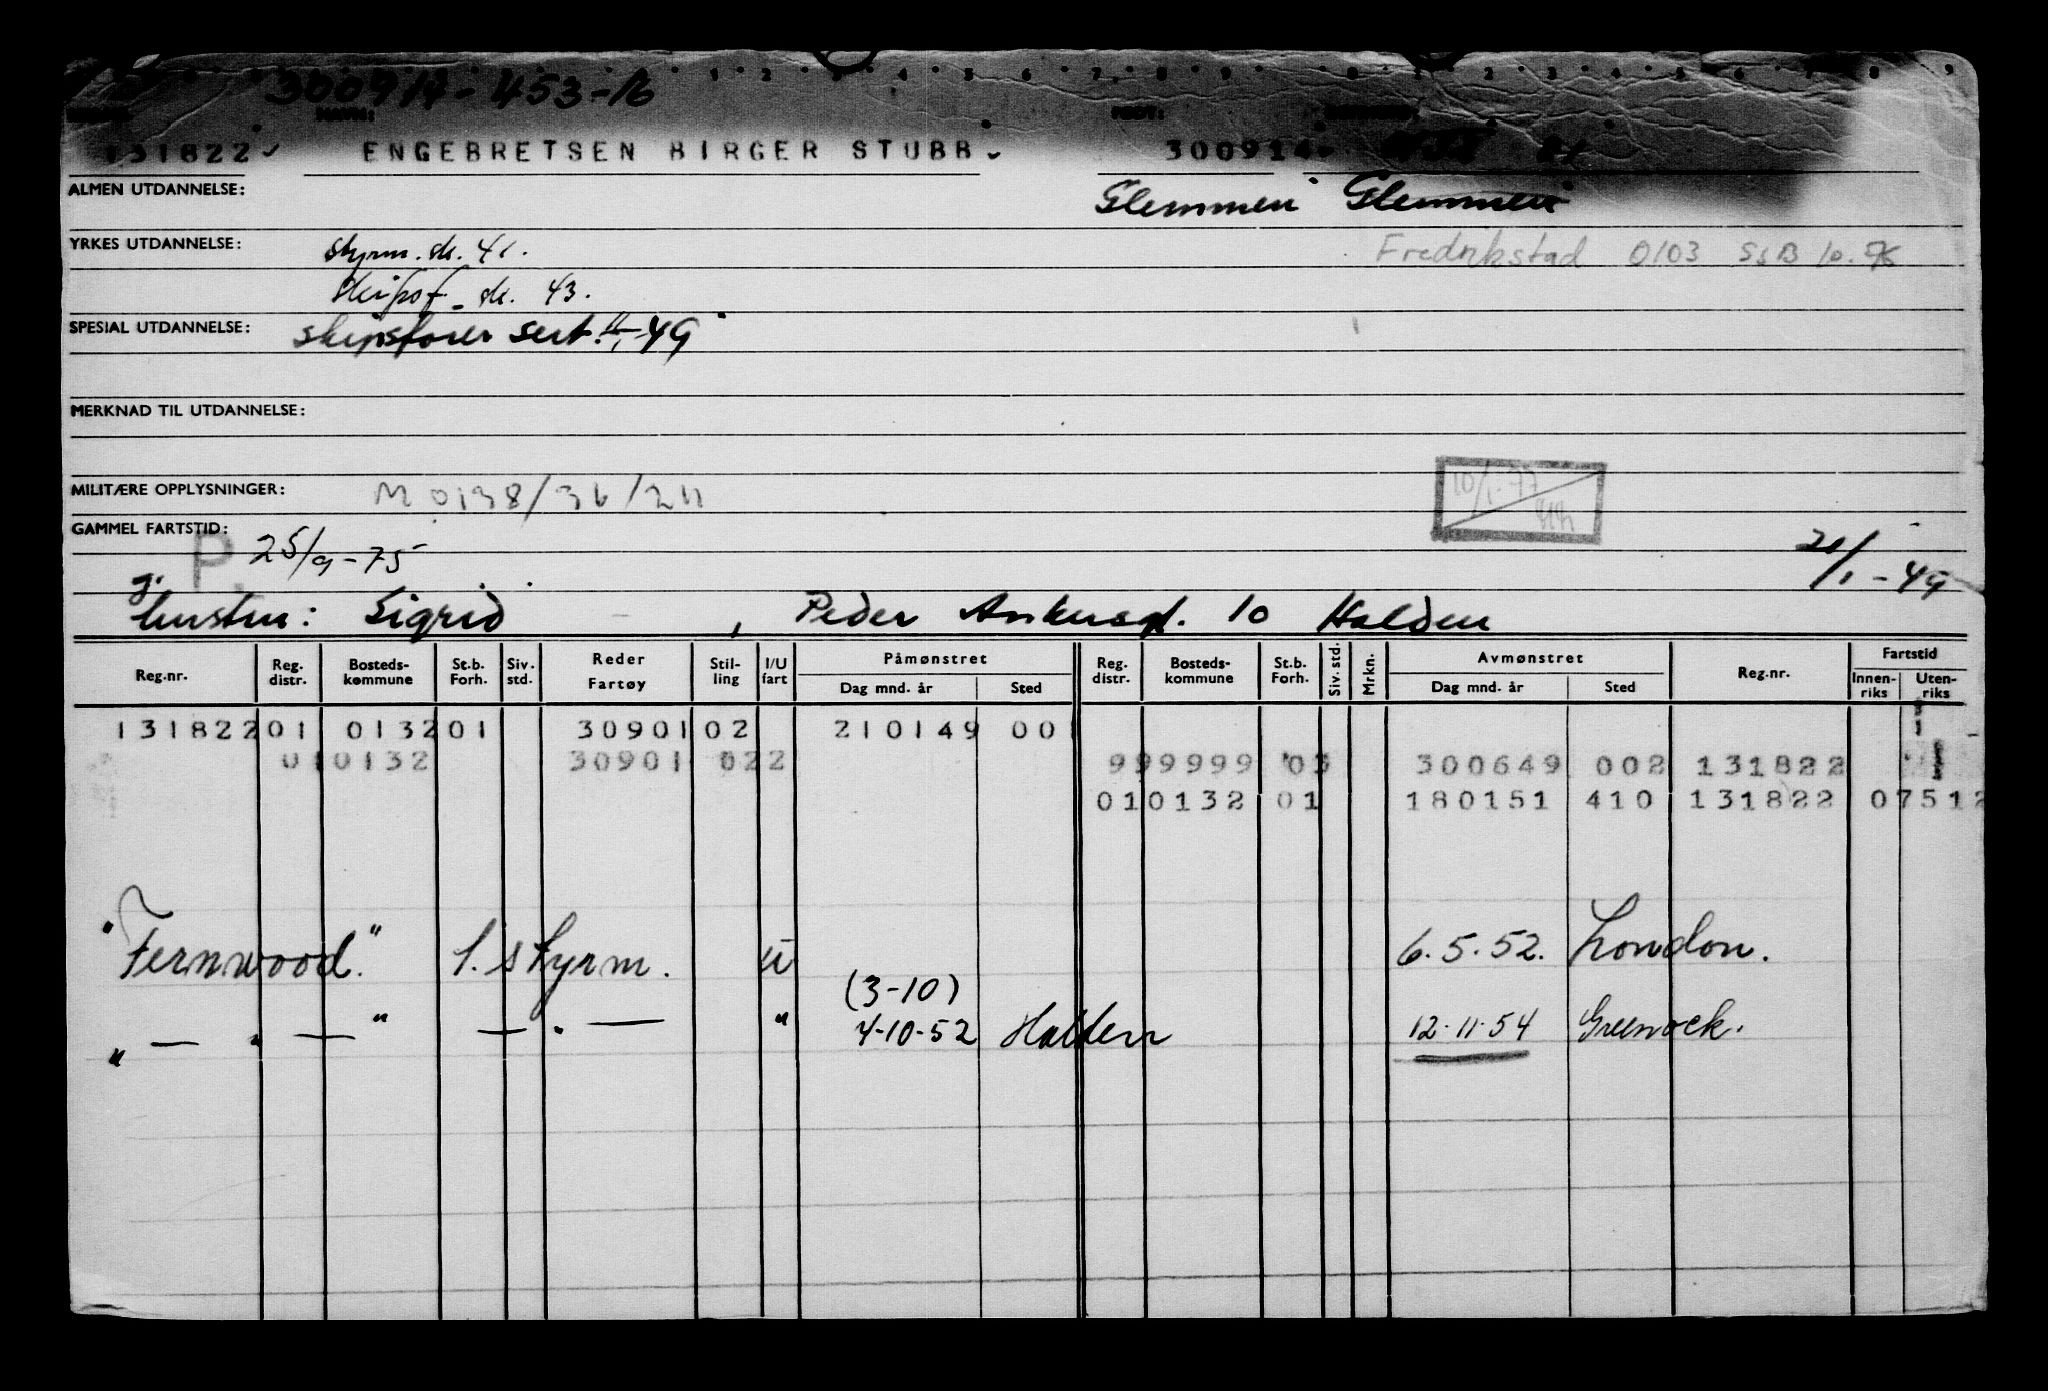 300914-453-16
1 2 3 4 5 6 7 8 9 0 1 2 3 4 5 6 7 8 9
NAVN: FØDT:
131822 ENGEBRETSEN BIRGER STUBB 300914
ALMEN UTDANNELSE: Glemmen Glemmen
YRKES UTDANNELSE: styrm. sk. 41. Fredrikstad 0103 SSB 10.
Skipsf. sk. 43.
SPESIAL UTDANNELSE: skipsfører sert. -49
MERKNAD TIL UTDANNELSE:
MILITÆRE OPPLYSNINGER: M 0138/36/211 10/1-77
GAMMEL FARTSTID: P. 25/9-75 21/1-49
g.
hustru: Sigrid , Peder Ankersgt. 10 Halden
Reg.nr. Reg. distr. Bosteds-kommune St.b. Forh. Siv. std. Reder Fartøy Stil-ling I/U fart Påmønstret Dag mnd. år Sted Reg. distr. Bosteds-kommune St.b. Forh. Siv. std. Mrkn. Avmønstret Dag mnd. år Sted Reg.nr. Fartstid Innen-riks Uten-riks
131822 01 0132 01 30901 02 210149 00
01 0132 30901 022 999999 03 300649 002 131822
01 0132 01 180151 410 131822 07512
"Fernwood." 1. styrm. u 6.5.52. London.
(3-10)
" — " — " — " — " 4-10-52 Halden 12-11-54 Greenock.